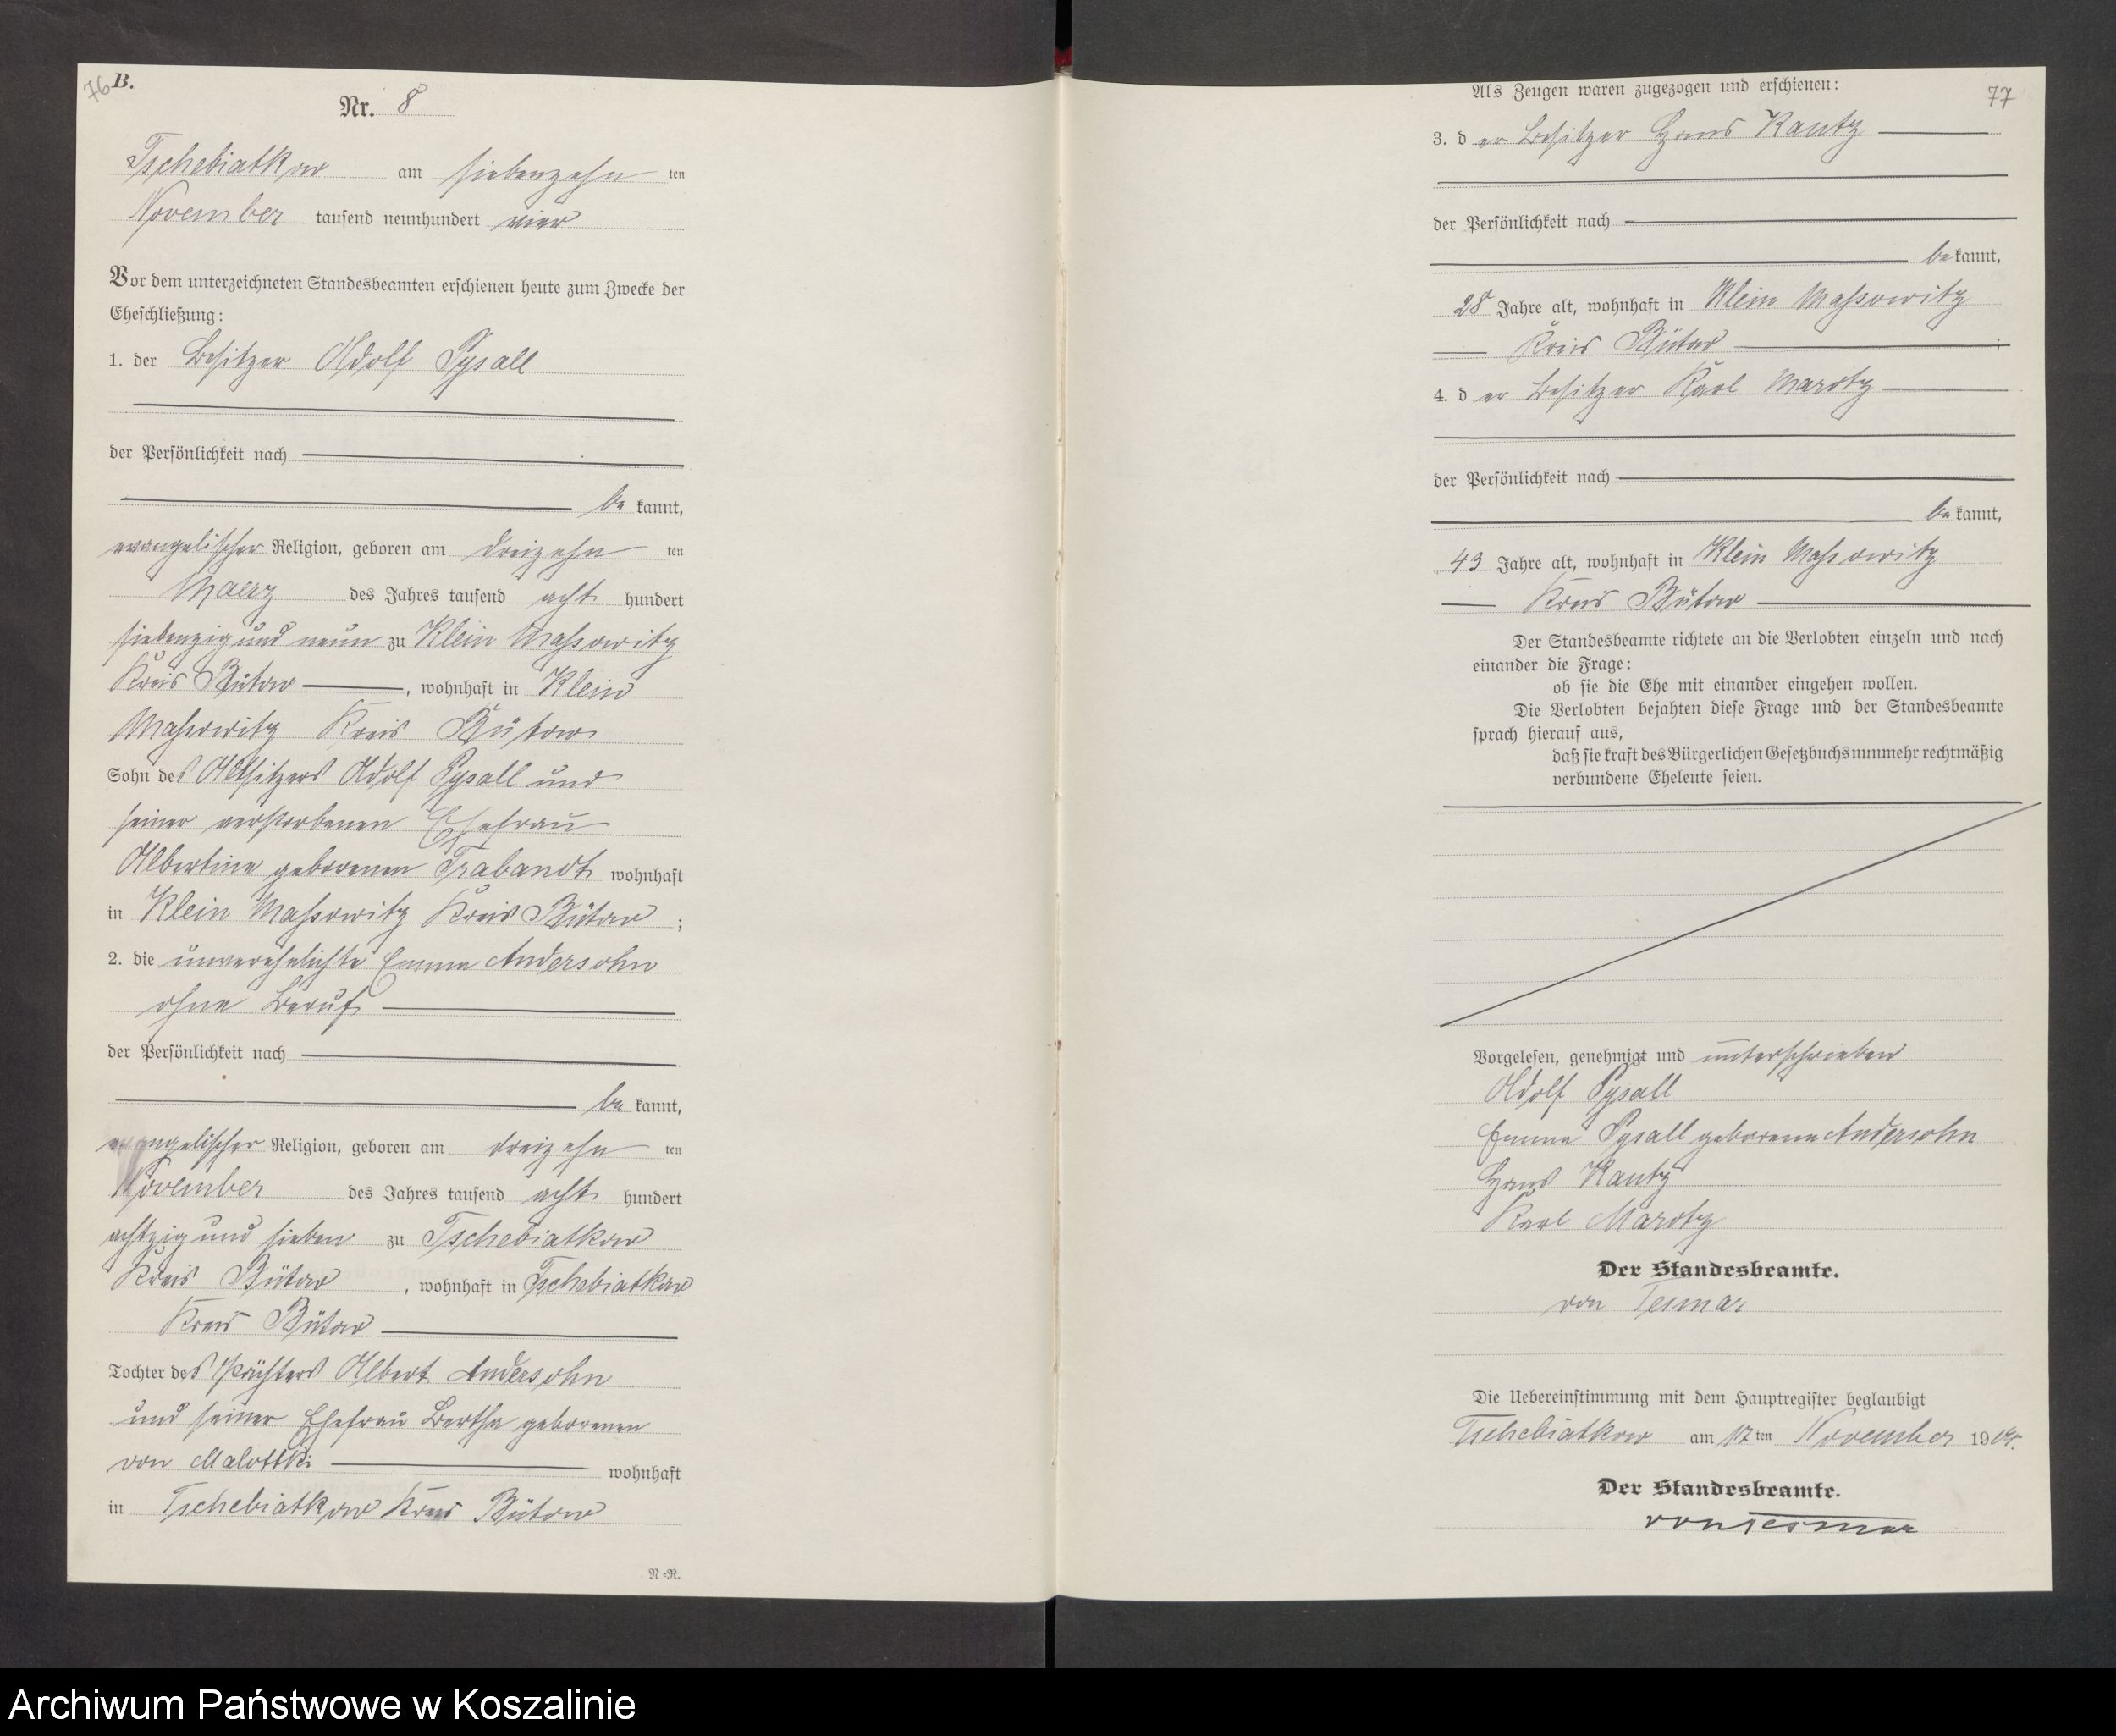 76
B.
Nr. 8
Tschebiatkow am siebenzehn ten
November tausend neunhundert vier
Vor dem unterzeichneten Standesbeamten erschienen heute zum Zwecke der
Eheschließung:
1. der Besitzer Adolf Pysall
der Persönlichkeit nach
be kannt,
evangelischer Religion, geboren am dreizehn ten
Maerz des Jahres tausend acht hundert
siebenzig und neun zu Klein Massowitz
Kreis Bütow, wohnhaft in Klein
Massowitz Kreis Bütow
Sohn des Altsitzers Adolf Pysall und
seiner verstorbenen Ehefrau
Albertine geborenen Trabandt wohnhaft
in Klein Massowitz Kreis Bütow ;
2. die unverehelichte Emma Andersohn
ohne Beruf
der Persönlichkeit nach
be kannt,
evangelischer Religion, geboren am dreizehn ten
November des Jahres tausend acht hundert
achtzig und sieben zu Tschebiatkow
Kreis Bütow, wohnhaft in Tschebiatkow
Kreis Bütow
Tochter des Pächters Albert Andersohn
und seiner Ehefrau Bertha geborenen
von Malottki wohnhaft
in Tschebiatkow Kreis Bütow
N=N.
77
Als Zeugen waren zugezogen und erschienen:
3. der Besitzer Hans Kautz
der Persönlichkeit nach
be kannt,
28 Jahre alt, wohnhaft in Klein Massowitz
Kreis Bütow ;
4. der Besitzer Karl Marotz
der Persönlichkeit nach
be kannt,
43 Jahre alt, wohnhaft in Klein Massowitz
Kreis Bütow
Der Standesbeamte richtete an die Verlobten einzeln und nach
einander die Frage:
ob sie die Ehe mit einander eingehen wollen.
Die Verlobten bejahten diese Frage und der Standesbeamte
sprach hierauf aus,
daß sie kraft des Bürgerlichen Gesetzbuchs nunmehr rechtmäßig
verbundene Eheleute seien.
Vorgelesen, genehmigt und unterschrieben
Adolf Pysall
Emma Pysall geborene Andersohn
Hans Kautz
Karl Marotz
Der Standesbeamte.
von Tesmar
Die Uebereinstimmung mit dem Hauptregister beglaubigt
Tschebiatkow am 17 ten November 1904.
Der Standesbeamte.
von Tesmar
Archiwum Państwowe w Koszalinie